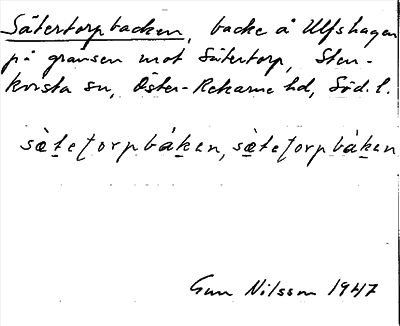 Sätertorpbacken, backe å Ulfshagen
på gränsen mot Sätertorp, Sten-
kvista sn, Öster-Rekarne hd, Söd. l.
sὰ̀tetorpbáken, sæ̀tetorpbáken
Gun Nilsson 1947